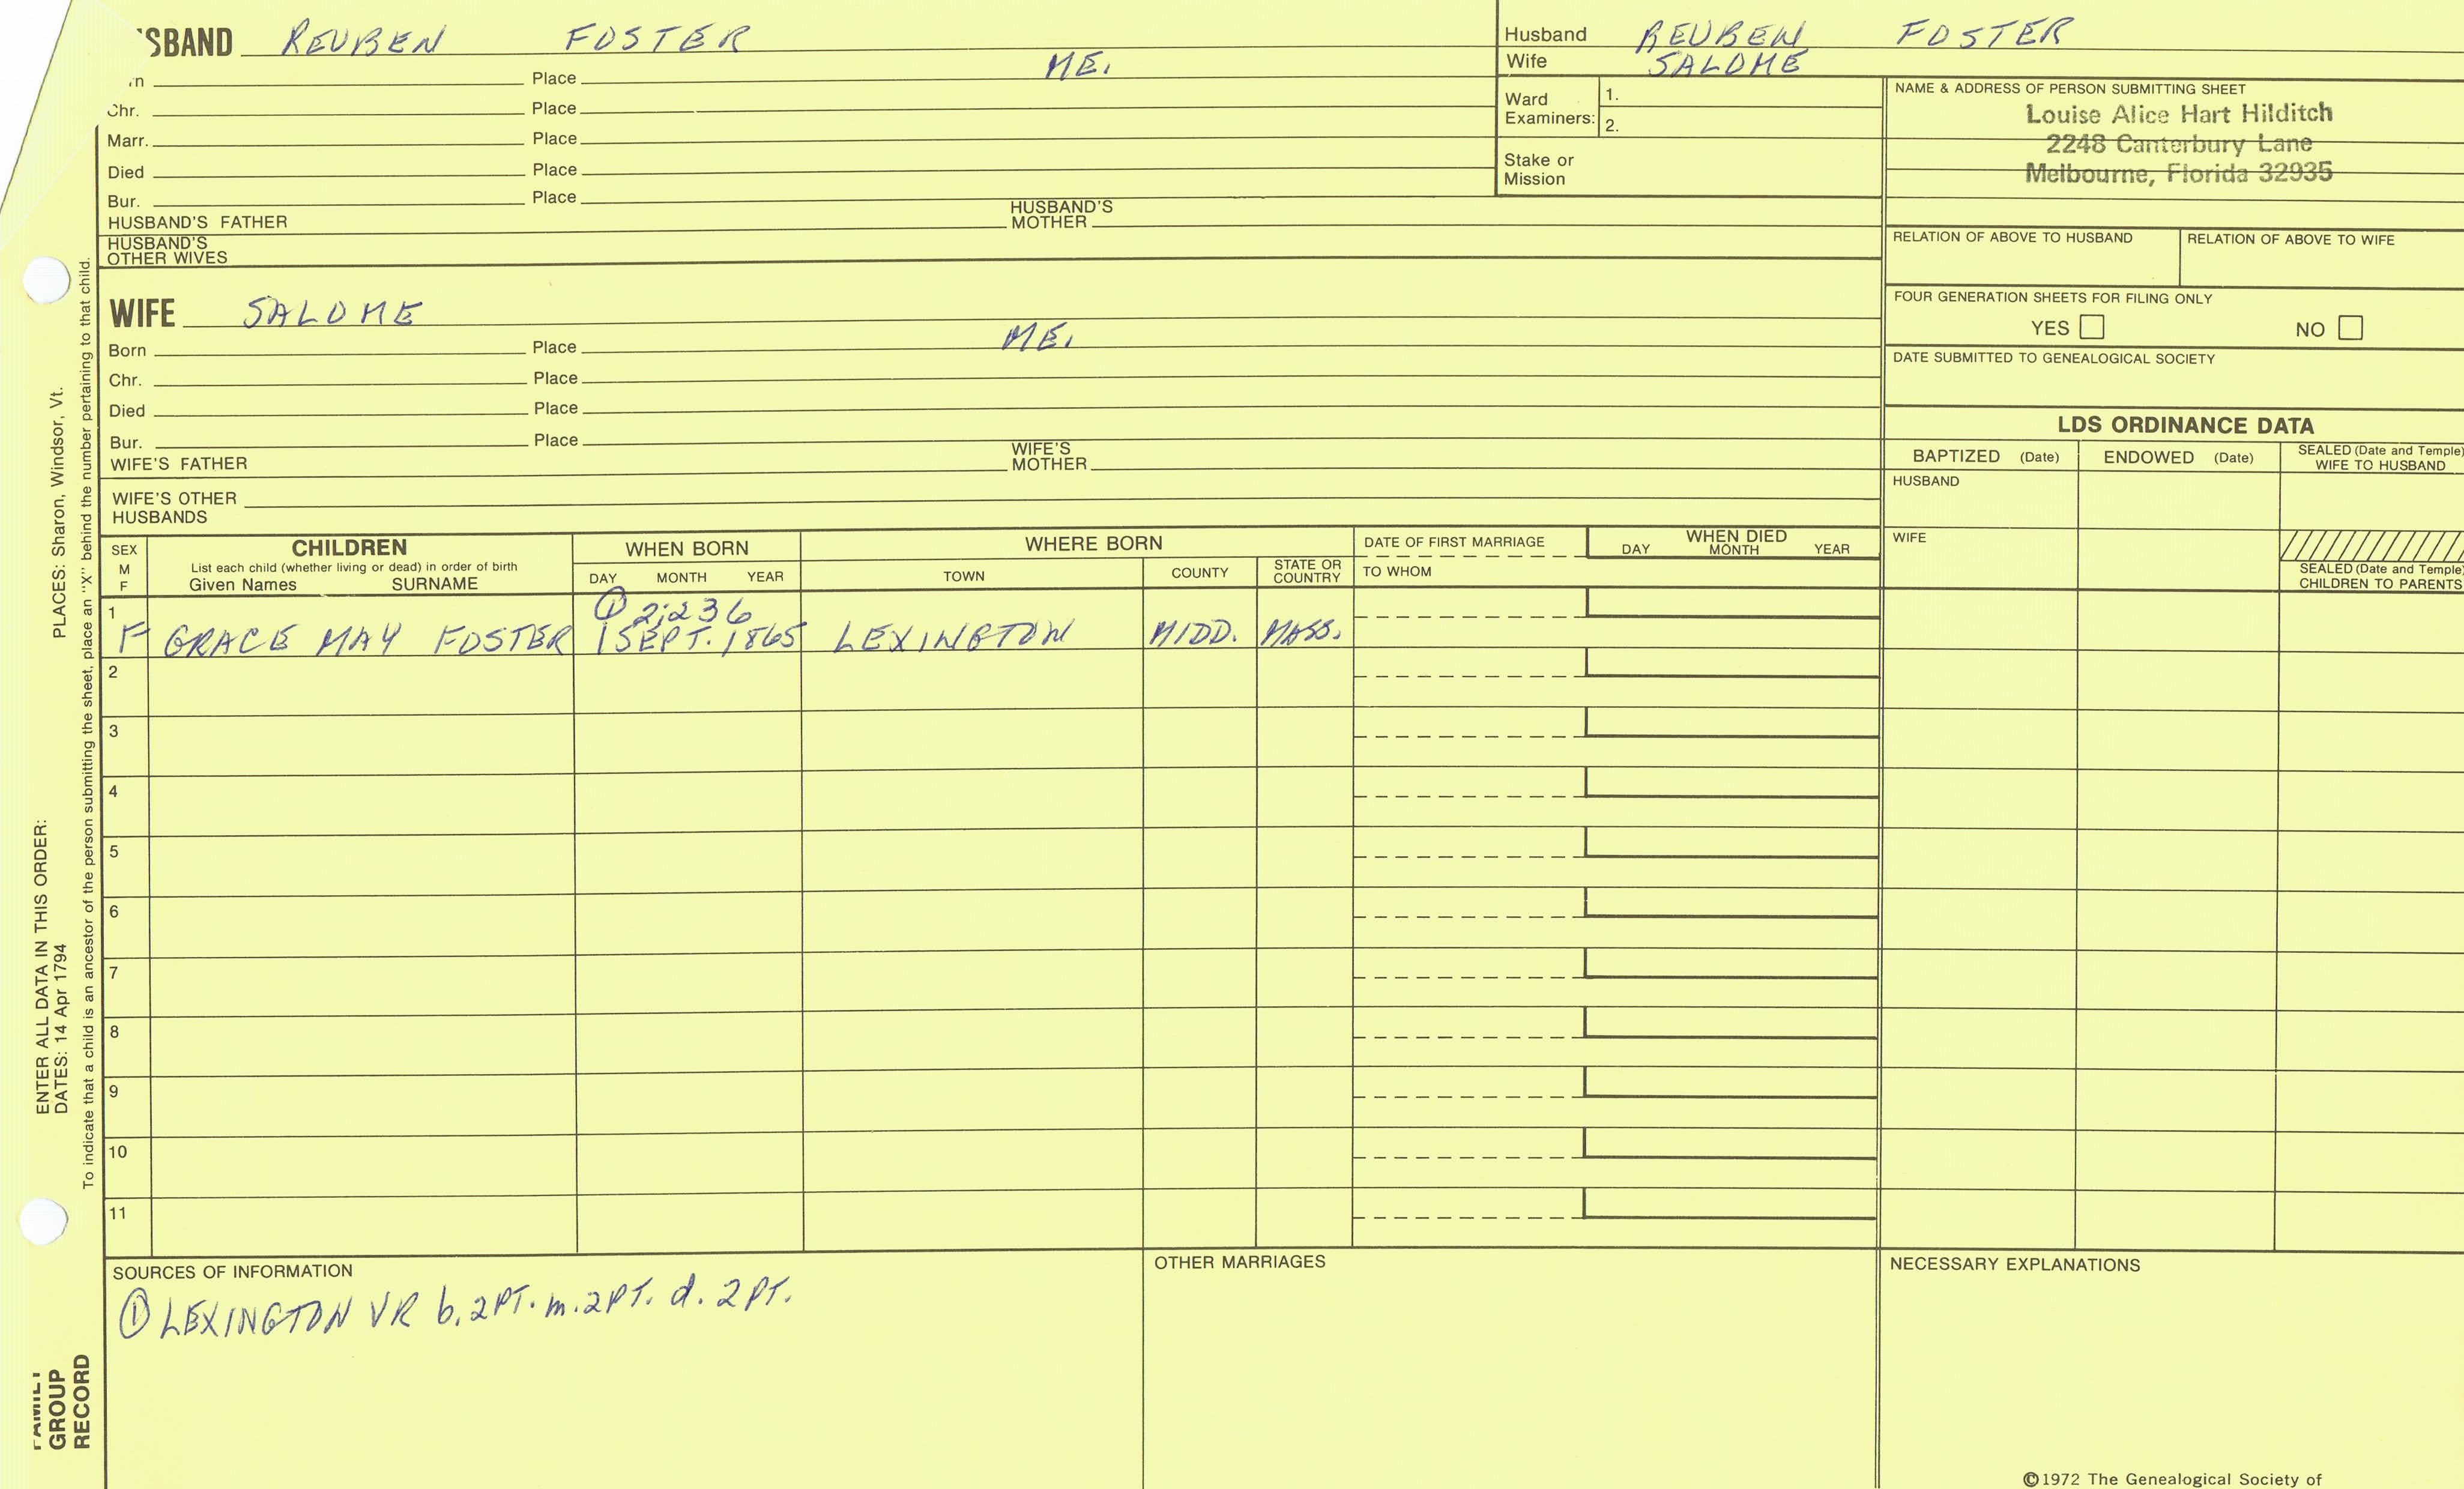 'SBAND REUBEN FOSTER
n Place ME.
Chr. Place
Marr. Place
Died Place
Bur. Place
HUSBAND'S FATHER HUSBAND'S MOTHER
HUSBAND'S OTHER WIVES
Husband REUBEN FOSTER
Wife SALOME
Ward Examiners: 1.
2.
Stake or Mission
NAME & ADDRESS OF PERSON SUBMITTING SHEET
Louise Alice Hart Hilditch
2248 Canterbury Lane
Melbourne, Florida 32935
RELATION OF ABOVE TO HUSBAND RELATION OF ABOVE TO WIFE
FOUR GENERATION SHEETS FOR FILING ONLY
YES NO
DATE SUBMITTED TO GENEALOGICAL SOCIETY
WIFE SALOME
Born Place ME.
Chr. Place
Died Place
Bur. Place
WIFE'S FATHER WIFE'S MOTHER
WIFE'S OTHER HUSBANDS
LDS ORDINANCE DATA
BAPTIZED (Date) ENDOWED (Date) SEALED (Date and Temple) WIFE TO HUSBAND
HUSBAND
WIFE
SEALED (Date and Temple) CHILDREN TO PARENTS
SEX M F
CHILDREN
List each child (whether living or dead) in order of birth
Given Names SURNAME
WHEN BORN
DAY MONTH YEAR
WHERE BORN
TOWN COUNTY STATE OR COUNTRY
DATE OF FIRST MARRIAGE
TO WHOM
WHEN DIED
DAY MONTH YEAR
1 ① 2;236
F GRACE MAY FOSTER 1 SEPT. 1865 LEXINGTON MIDD. MASS.
2
3
4
5
6
7
8
9
10
11
SOURCES OF INFORMATION
① LEXINGTON VR b. 2PT. m. 2PT. d. 2PT.
OTHER MARRIAGES
NECESSARY EXPLANATIONS
©1972 The Genealogical Society of
ENTER ALL DATA IN THIS ORDER:
DATES: 14 Apr 1794 PLACES: Sharon, Windsor, Vt.
To indicate that a child is an ancestor of the person submitting the sheet, place an "X" behind the number pertaining to that child.
FAMILY
GROUP
RECORD